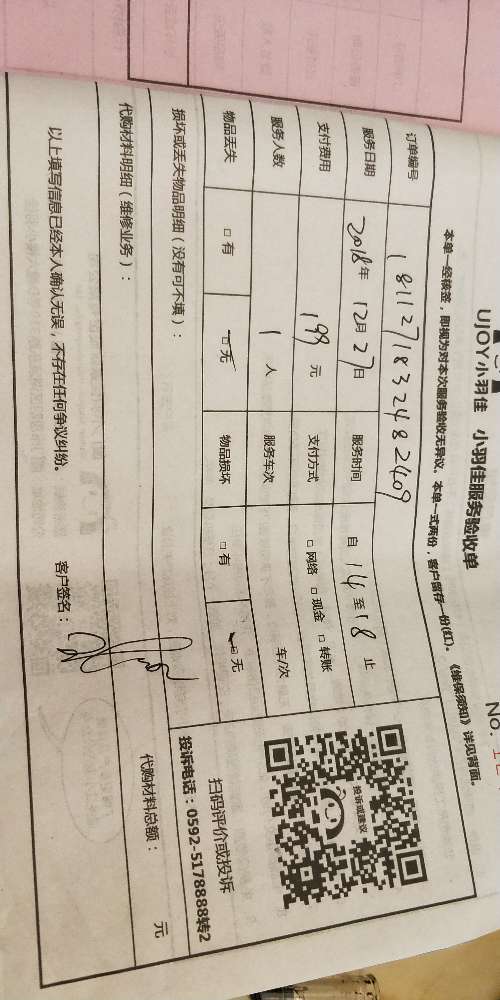 UJOY小羽佳 小羽佳服务验收单
No.
本单一经核签，即视为对本次服务验收无异议。本单一式两份，客户留存一份(红)。《维保须知》详见背面。
订单编号 1811271832482409
服务日期 2018年 12月 27日 服务时间 自 14 至 18 止
支付费用 199 元 支付方式 □ 网络 □ 现金 □ 转账
服务人数 1 人 服务车次 车/次
物品丢失 □ 有 □ 无 物品损坏 □ 有 □ 无
损坏或丢失物品明细（没有可不填）：
代购材料明细（维修业务）：
代购材料总额： 元
以上填写信息已经本人确认无误，不存在任何争议纠纷。 客户签名：
投诉或建议
扫码评价或投诉
投诉电话：0592-5178888转2